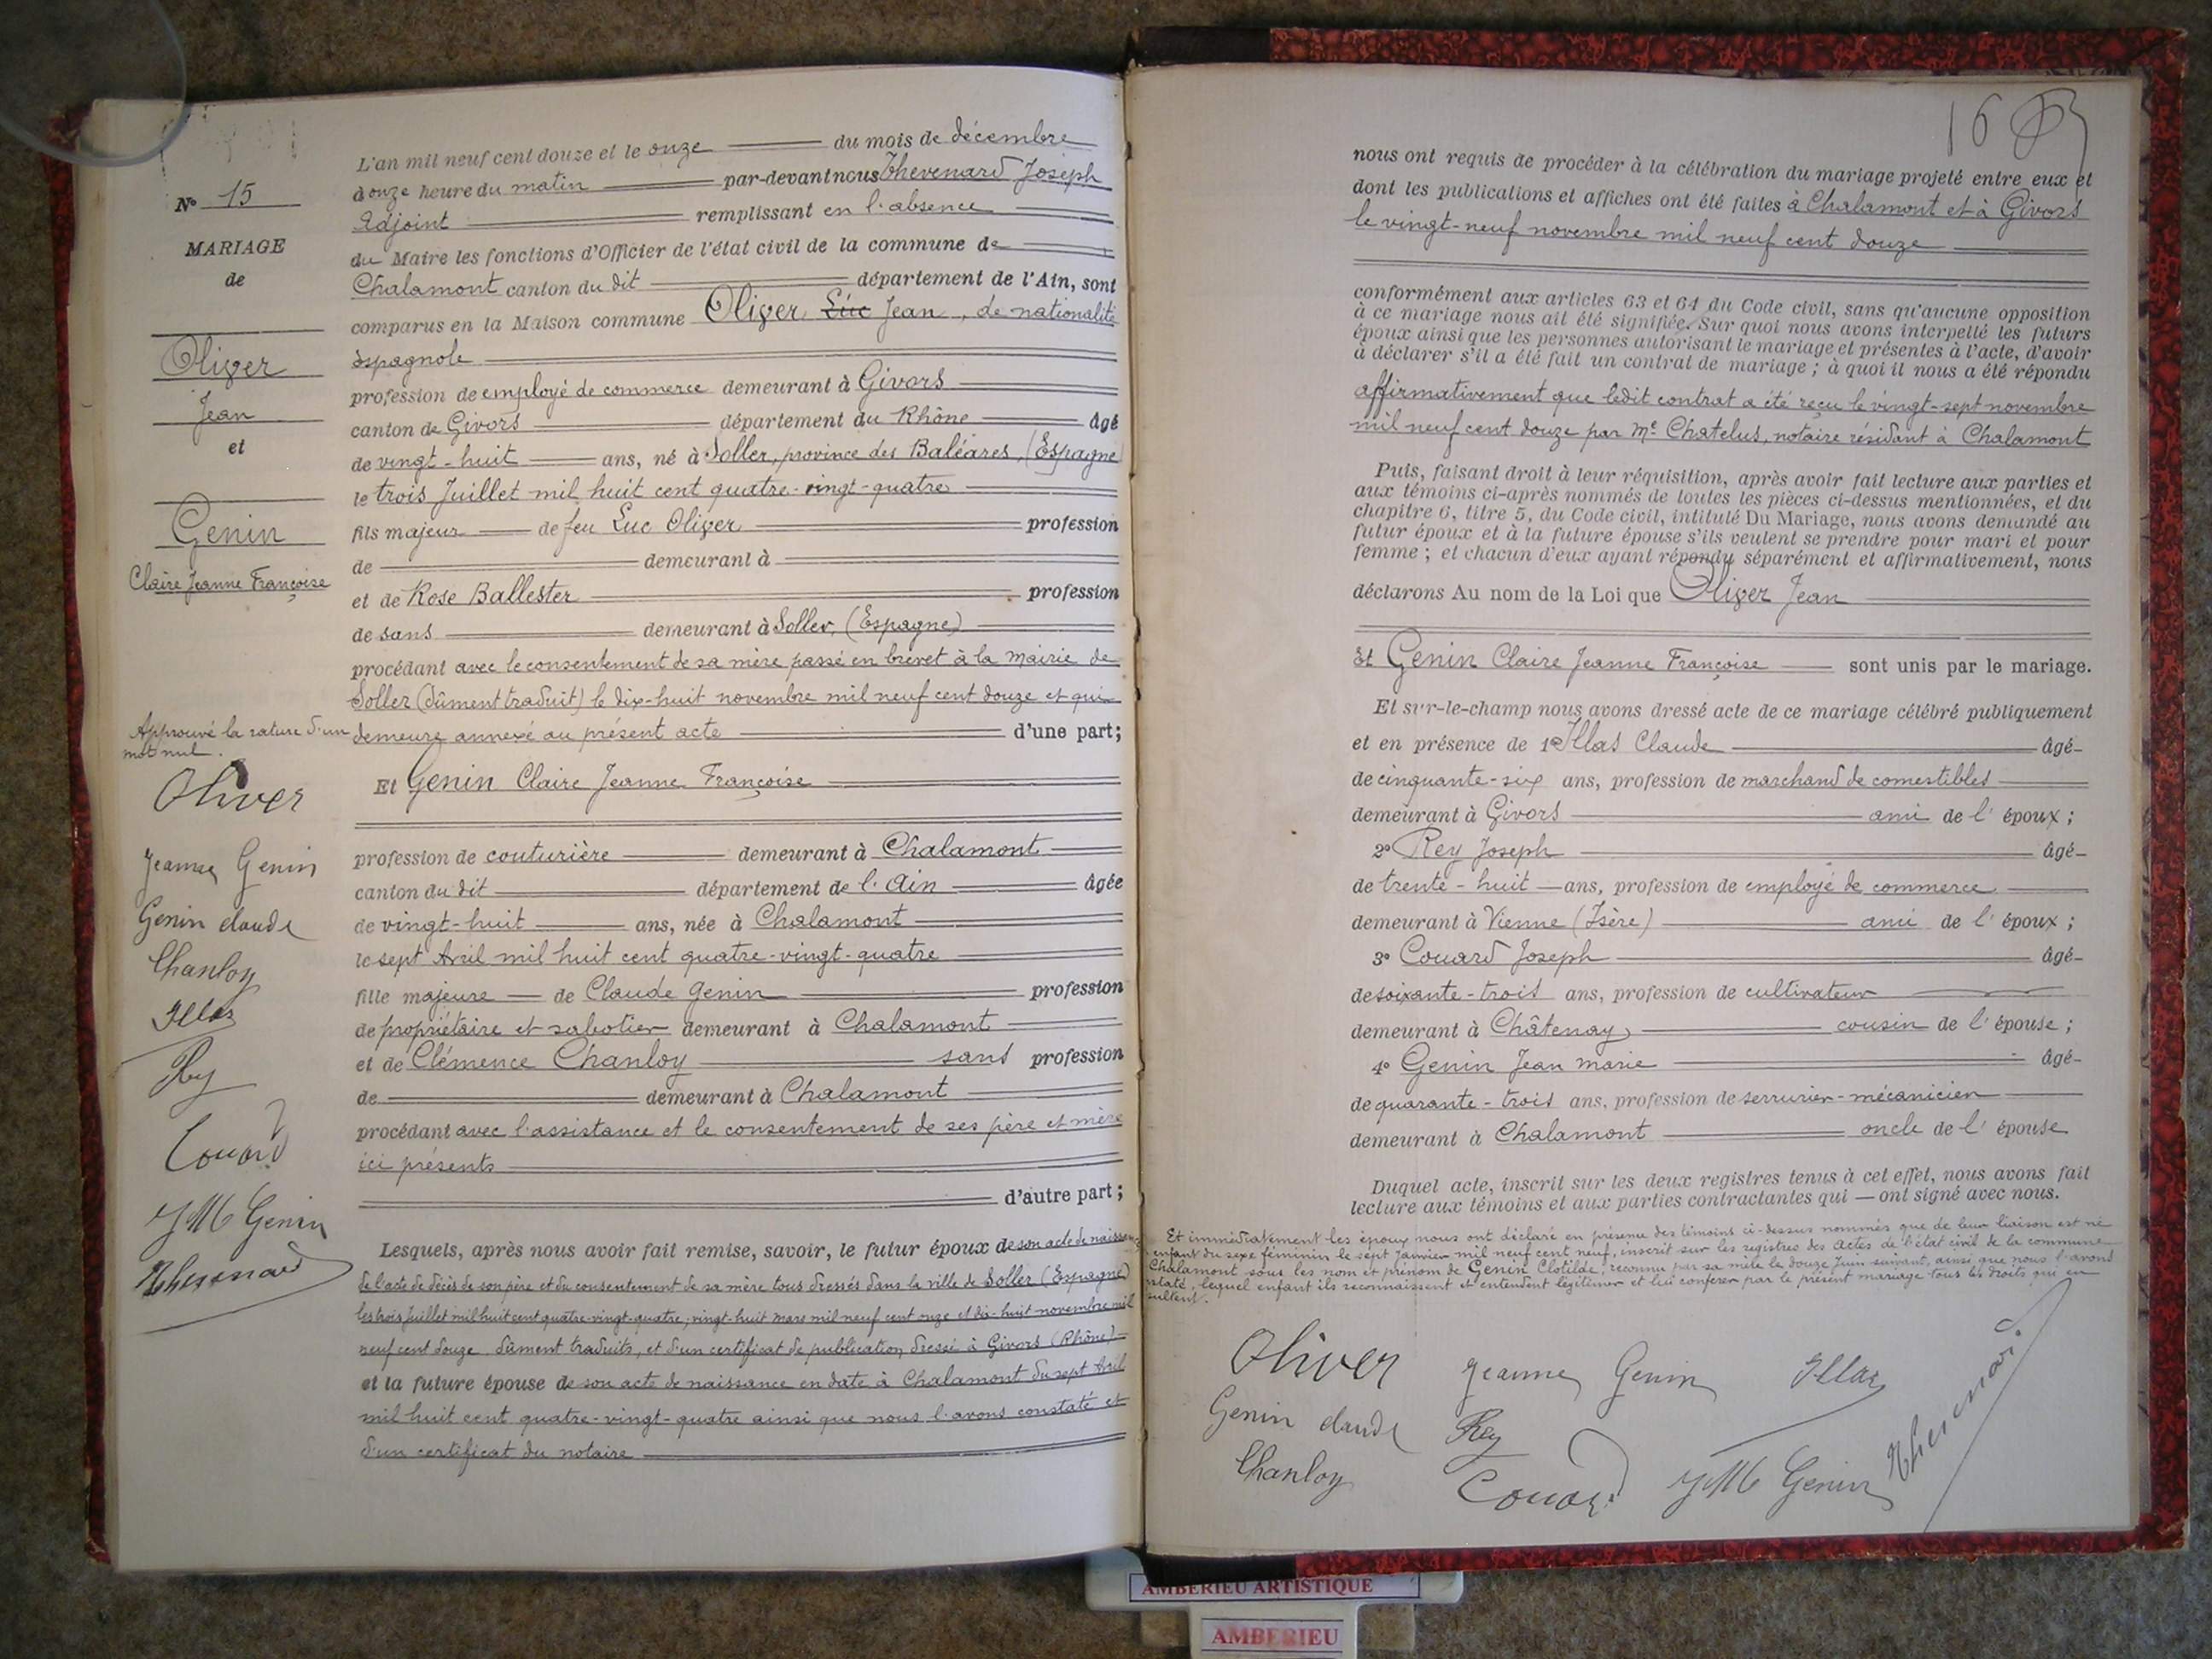 N° 15
MARIAGE
de
Oliver
Jean
et
Genin
Claire Jeanne Françoise
Approuvé la rature d'un
mot nul.
Oliver
Jeanne Genin
Genin claude
Chanloy
Illas
Rey
Couard
JM Genin
Thevenard
L'an mil neuf cent douze et le onze du mois de décembre
à onze heure du matin par-devant nous Thevenard Joseph
Adjoint remplissant en l'absence
du Maire les fonctions d'Officier de l'état civil de la commune de
Chalamont canton du dit département de l'Ain, sont
comparus en la Maison commune Oliver Luc Jean, de nationalité
espagnole
profession de employé de commerce demeurant à Givors
canton de Givors département du Rhône âgé
de vingt-huit ans, né à Soller, province des Baléares, (Espagne)
le trois Juillet mil huit cent quatre-vingt-quatre
fils majeur de feu Luc Oliver profession
de demeurant à
et de Rose Ballester profession
de sans demeurant à Soller, (Espagne)
procédant avec le consentement de sa mère passé en brevet à la mairie de
Soller (dûment traduit) le dix-huit novembre mil neuf cent douze et qui
demeure annexé au présent acte d'une part;
Et Genin Claire Jeanne Françoise
profession de couturière demeurant à Chalamont
canton du dit département de l'Ain âgée
de vingt-huit ans, née à Chalamont
le sept Avril mil huit cent quatre-vingt-quatre
fille majeure de Claude Genin profession
de propriétaire et sabotier demeurant à Chalamont
et de Clémence Chanloy sans profession
de demeurant à Chalamont
procédant avec l'assistance et le consentement de ses père et mère
ici présents
d'autre part;
Lesquels, après nous avoir fait remise, savoir, le futur époux de son acte de naissance
de l'acte de décès de son père et du consentement de sa mère tous dressés dans la ville de Soller (Espagne)
les trois Juillet mil huit cent quatre-vingt-quatre, vingt-huit mars mil neuf cent onze et dix-huit novembre mil
neuf cent douze dûment traduits, et d'un certificat de publication dressé à Givors (Rhône)
et la future épouse de son acte de naissance en date à Chalamont du sept Avril
mil huit cent quatre-vingt-quatre ainsi que nous l'avons constaté et
d'un certificat du notaire
16
nous ont requis de procéder à la célébration du mariage projeté entre eux et
dont les publications et affiches ont été faites à Chalamont et à Givors
le vingt-neuf novembre mil neuf cent douze
conformément aux articles 63 et 64 du Code civil, sans qu'aucune opposition
à ce mariage nous ait été signifiée. Sur quoi nous avons interpellé les futurs
époux ainsi que les personnes autorisant le mariage et présentes à l'acte, d'avoir
à déclarer s'il a été fait un contrat de mariage; à quoi il nous a été répondu
affirmativement que ledit contrat a été reçu le vingt-sept novembre
mil neuf cent douze par Me Chatelus, notaire résidant à Chalamont
Puis, faisant droit à leur réquisition, après avoir fait lecture aux parties et
aux témoins ci-après nommés de toutes les pièces ci-dessus mentionnées, et du
chapitre 6, titre 5, du Code civil, intitulé Du Mariage, nous avons demandé au
futur époux et à la future épouse s'ils veulent se prendre pour mari et pour
femme; et chacun d'eux ayant répondu séparément et affirmativement, nous
déclarons Au nom de la Loi que Oliver Jean
et Genin Claire Jeanne Françoise sont unis par le mariage.
Et sur-le-champ nous avons dressé acte de ce mariage célébré publiquement
et en présence de 1° Illas Claude âgé
de cinquante-six ans, profession de marchand de comestibles
demeurant à Givors ami de l'époux;
2° Rey Joseph âgé
de trente-huit ans, profession de employé de commerce
demeurant à Vienne (Isère) ami de l'époux;
3° Couard Joseph âgé
de soixante-trois ans, profession de cultivateur
demeurant à Châtenay cousin de l'épouse;
4° Genin Jean Marie âgé
de quarante-trois ans, profession de serrurier-mécanicien
demeurant à Chalamont oncle de l'épouse
Duquel acte, inscrit sur les deux registres tenus à cet effet, nous avons fait
lecture aux témoins et aux parties contractantes qui — ont signé avec nous.
Et immédiatement les époux nous ont déclaré en présence des témoins ci-dessus nommés que de leur liaison est né
enfant du sexe féminin le sept Janvier mil neuf cent neuf, inscrit sur les registres des actes de l'état civil de la commune
Chalamont sous les nom et prénom de Genin Clotilde, reconnu par sa mère le douze Juin suivant, ainsi que nous l'avons
staté, lequel enfant ils reconnaissent et entendent légitimer et lui conférer par le présent mariage tous les droits qui en
sultent.
Oliver Jeanne Genin Illas
Genin claude Rey Thevenard
Chanloy Couard JM Genin
AMBERIEU ARTISTIQUE
AMBERIEU